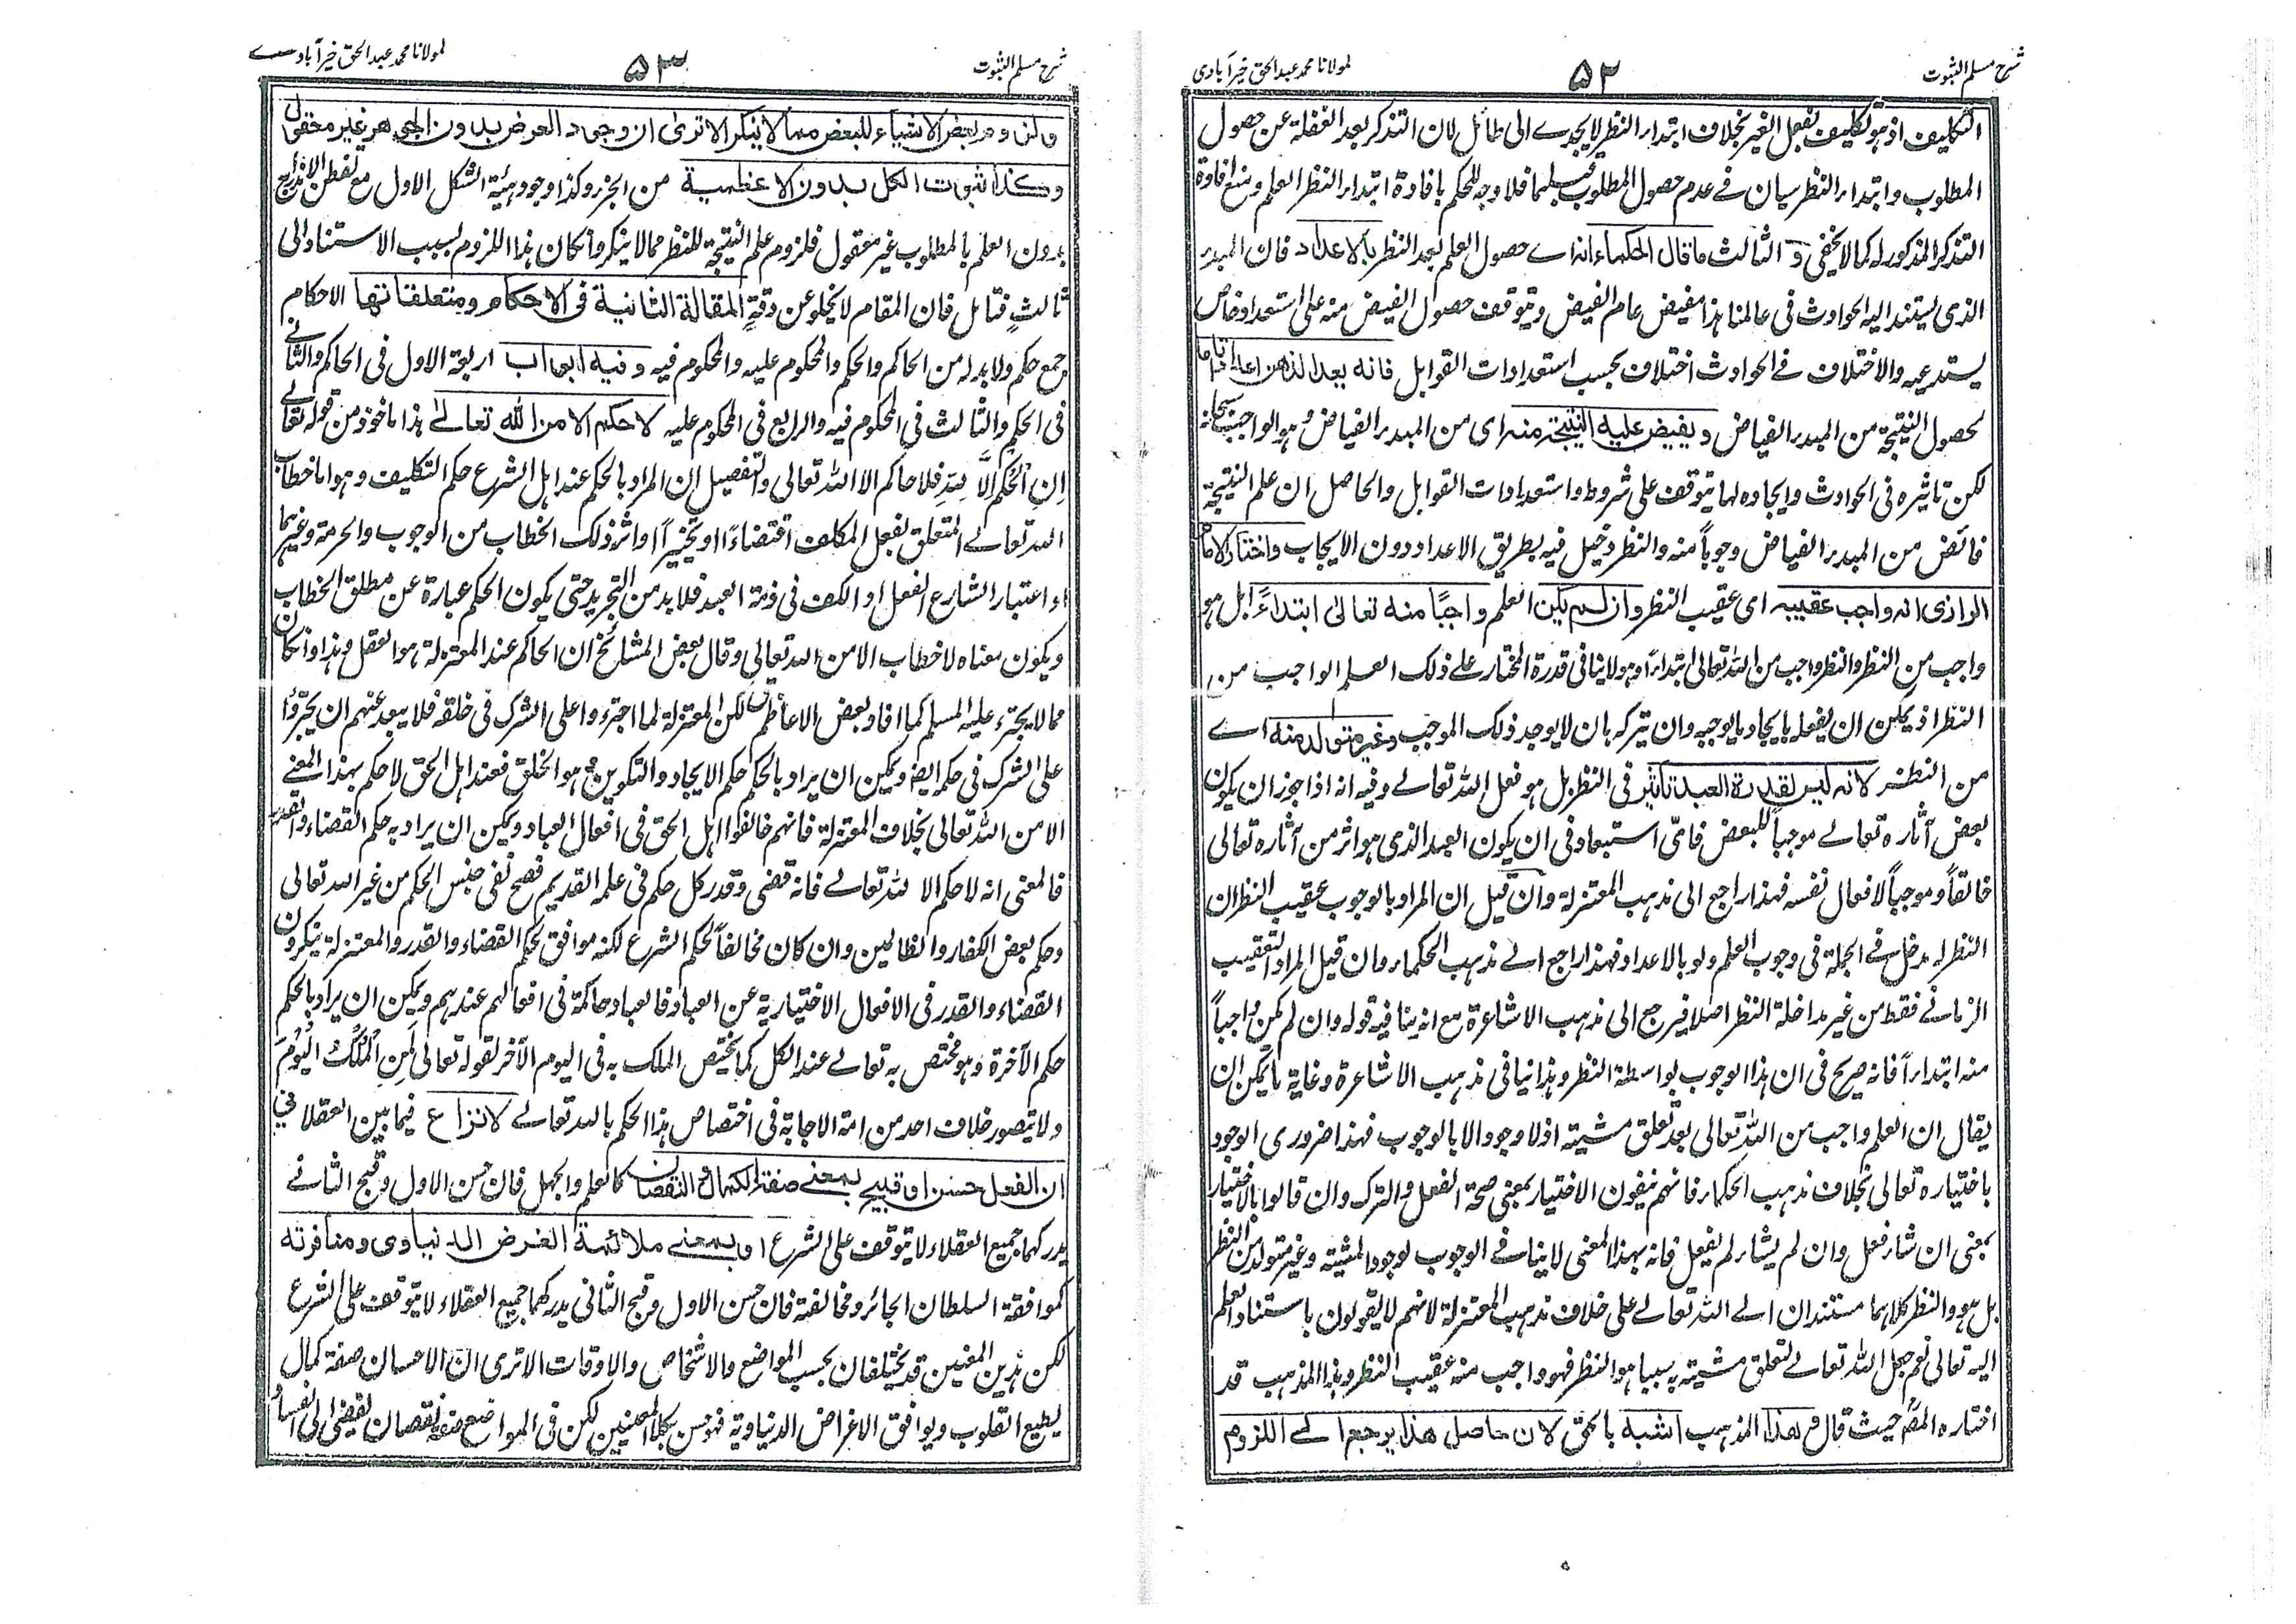 شرح مسلم الثبوت
۵۲
لمولانا محمد عبد الحق خیرآبادی
التكليف اذ هو تكليف بفعل الغير بخلاف ابتداء النظر لا يجدے الى طائل لان التذكر بعد الغفلة عن حصول
المطلوب وابتداء النظر سيان فے عدم حصول المطلوب قبلهما فلا وجه للحكم بافادة ابتداء النظر العلم ومنع افادة
التذكر المذكور له كما لا يخفى و الثالث ما قال الحكماء انه اے حصول العلم بعد النظر بالاعداد فان المبدء
الذى يستند اليه الحوادث فى عالمنا هذا مفيض عام الفيض ويتوقف حصول الفيض منه على استعداد خاص
يستدعيه والاختلاف فے الحوادث اختلاف بحسب استعدادات القوابل فانه يعد الذهن اعدادا تاما
لحصول النتيجة من المبدء الفياض و يفيض عليه النتيجة منه اى من المبدء الفياض وهو الواجب سبحانه
لكن تاثيره فى الحوادث وايجاده لها يتوقف على شروط واستعدادات القوابل والحاصل ان علم النتيجة
فائض من المبدء الفياض وجوباً منه والنظر دخيل فيه بطريق الاعداد دون الايجاب واختار الامام
الرازى انه واجب عقيبه اى عقيب النظر وان لم يكن العلم واجبًا منه تعالى ابتداءً بل هو
واجب من النظر والنظر واجب من الله تعالى ابتداءً وهو لا ينافى قدرة المختار على ذلك العلم الواجب من
النظر اذ يمكن ان يفعله بايجاد ما يوجبه وان يتركه بان لا يوجد ذلك الموجب وغير متولد منه اے
من النظر لانه ليس لقدرة العبد تاثير فى النظر بل هو فعل الله تعالے وفيه انه اذا جوز ان يكون
بعض آثاره تعالے موجباً للبعض فاىّ استبعاد فى ان يكون العبد الذى هو اثر من آثاره تعالى
خالقاً وموجباً لافعال نفسه فهذا راجع الى مذهب المعتزلة وان قيل ان المراد بالوجوب عقيب النظر ان
النظر له مدخل فے الجملة فى وجوب العلم ولو بالاعداد فهذا راجع الے مذهب الحكماء وان قيل المراد التعقيب
الزمانے فقط من غير مداخلة النظر اصلا فيرجع الى مذهب الاشاعرة مع انه ينافيه قوله وان لم يكن واجباً
منه ابتداءاً فانه صريح فى ان هذا الوجوب بواسطة النظر وهذا ينافى مذهب الاشاعرة وغاية ما يمكن ان
يقال ان العلم واجب من الله تعالى بعد تعلق مشيته اذ لا وجود الا بالوجوب فهذا ضرورى الوجود
باختياره تعالى بخلاف مذهب الحكماء فانهم ينفون الاختيار بمعنى صحة الفعل والترك وان قالوا بالاختيار
بمعنى ان شاء فعل وان لم يشاء لم يفعل فانه بهذا المعنى لا ينافے الوجوب لوجود المشيته وغير متولد من النظر
بل هو والنظر كلاهما مستندان الے الله تعالے على خلاف مذهب المعتزلة لانهم لا يقولون باستناد العلم
اليه تعالى نعم جعل الله تعالے لتعلق مشيته به سببا هو النظر فهو واجب منه عقيب النظر وهذا المذهب قد
اختاره المصؒ حيث قال و هذا المذهب اشبه بالحق لان حاصل هذا يرجع الے اللزوم
شرح مسلم الثبوت
۵۳
لمولانا محمد عبد الحق خیرآبادے
ولزوم بعض الاشياء للبعض مما لا ينكر الا ترى ان وجود العرض بدون الجوهر غير معقول
وكذا ثبوت الكل بدون الاعظمية من الجزء وكذا وجود هيئة الشكل الاول مع تفطن الاندراج
بدون العلم بالمطلوب غير معقول فلزوم علم النتيجة للنظر مما لا ينكر وان كان هذا اللزوم بسبب الاستناد الى
ثالث فتامل فان المقام لا يخلو عن دقة المقالة الثانية فى الاحكام ومتعلقاتها الاحكام
جمع حكم ولا بد له من الحاكم والحكم والمحكوم عليه والمحكوم فيه وفيه ابواب اربعة الاول فى الحاكم والثانے
فى الحكم والثالث فى المحكوم فيه والرابع فى المحكوم عليه لا حكم الا من الله تعالے هذا ماخوذ من قوله تعالے
اِنِ الْحُكْمُ اِلَّا لِلّٰهِ فلا حاكم الا الله تعالى والتفصيل ان المراد بالحكم عند اهل الشرع حكم التكليف وهو اما خطاب
الله تعالے المتعلق بفعل المكلف اقتضاءً او تخييراً او اثر ذلك الخطاب من الوجوب والحرمة وغيرهما
او اعتبار الشارع الفعل او الكف فى ذمة العبد فلا بد من التجريد حتى يكون الحكم عبارة عن مطلق الخطاب
ويكون معناه لا خطاب الا من الله تعالى وقال بعض المشائخ ان الحاكم عند المعتزلة هو العقل وهذا وان كان
مما لا يجترء عليه المسلم كما افاد بعض الاعاظم لكن المعتزلة لما اجترءوا على الشرك فى خلقه فلا يبعد عنهم ان يجترءوا
على الشرك فى حكمه ايضا ويمكن ان يراد بالحكم حكم الايجاد والتكوين هو الخلق فعند اهل الحق لا حكم بهذا المعنے
الا من الله تعالى بخلاف المعتزلة فانهم خالفوا اهل الحق فى افعال العباد ويمكن ان يراد به حكم القضاء والقدر
فالمعنى انه لا حكم الا لله تعالے فانه قضى وقدر كل حكم فى علمه القديم فصح نفى جنس الحكم من غير الله تعالى
وحكم بعض الكفار والظالمين وان كان مخالفاً لحكم الشرع لكنه موافق لحكم القضاء والقدر والمعتزلة ينكرون
القضاء والقدر فى الافعال الاختيارية عن العباد فالعباد حاكمة فى افعالهم عندهم ويمكن ان يراد بالحكم
حكم الآخرة وهو مختص به تعالے عند الكل كما يختص الملك به فى اليوم الآخر لقوله تعالى لِمَنِ الْمُلْكُ الْيَوْمَ
ولا يتصور خلاف احد من امة الاجابة فى اختصاص هذا الحكم بالله تعالے لا نزاع فيما بين العقلا فى
ان الفعل حسن او قبيح بمعنے صفة الكمال والنقصان كالعلم والجهل فان حسن الاول وقبح الثانے
يدركهما جميع العقلاء لا يتوقف على الشرع او بمعنے ملائمة الغرض الدنياوى ومنافرته
كموافقة السلطان الجائر ومخالفته فان حسن الاول وقبح الثانى يدركهما جميع العقلاء لا يتوقف على الشرع
لكن هذين المعنيين قد يختلفان بحسب المواضع والاشخاص والاوقات الا ترى ان الاحسان صفة كمال
يطيع القلوب ويوافق الاغراض الدنياوية فهو حسن بكلا المعنيين لكن فى المواضع صفة نقصان يفضى الى الفساد